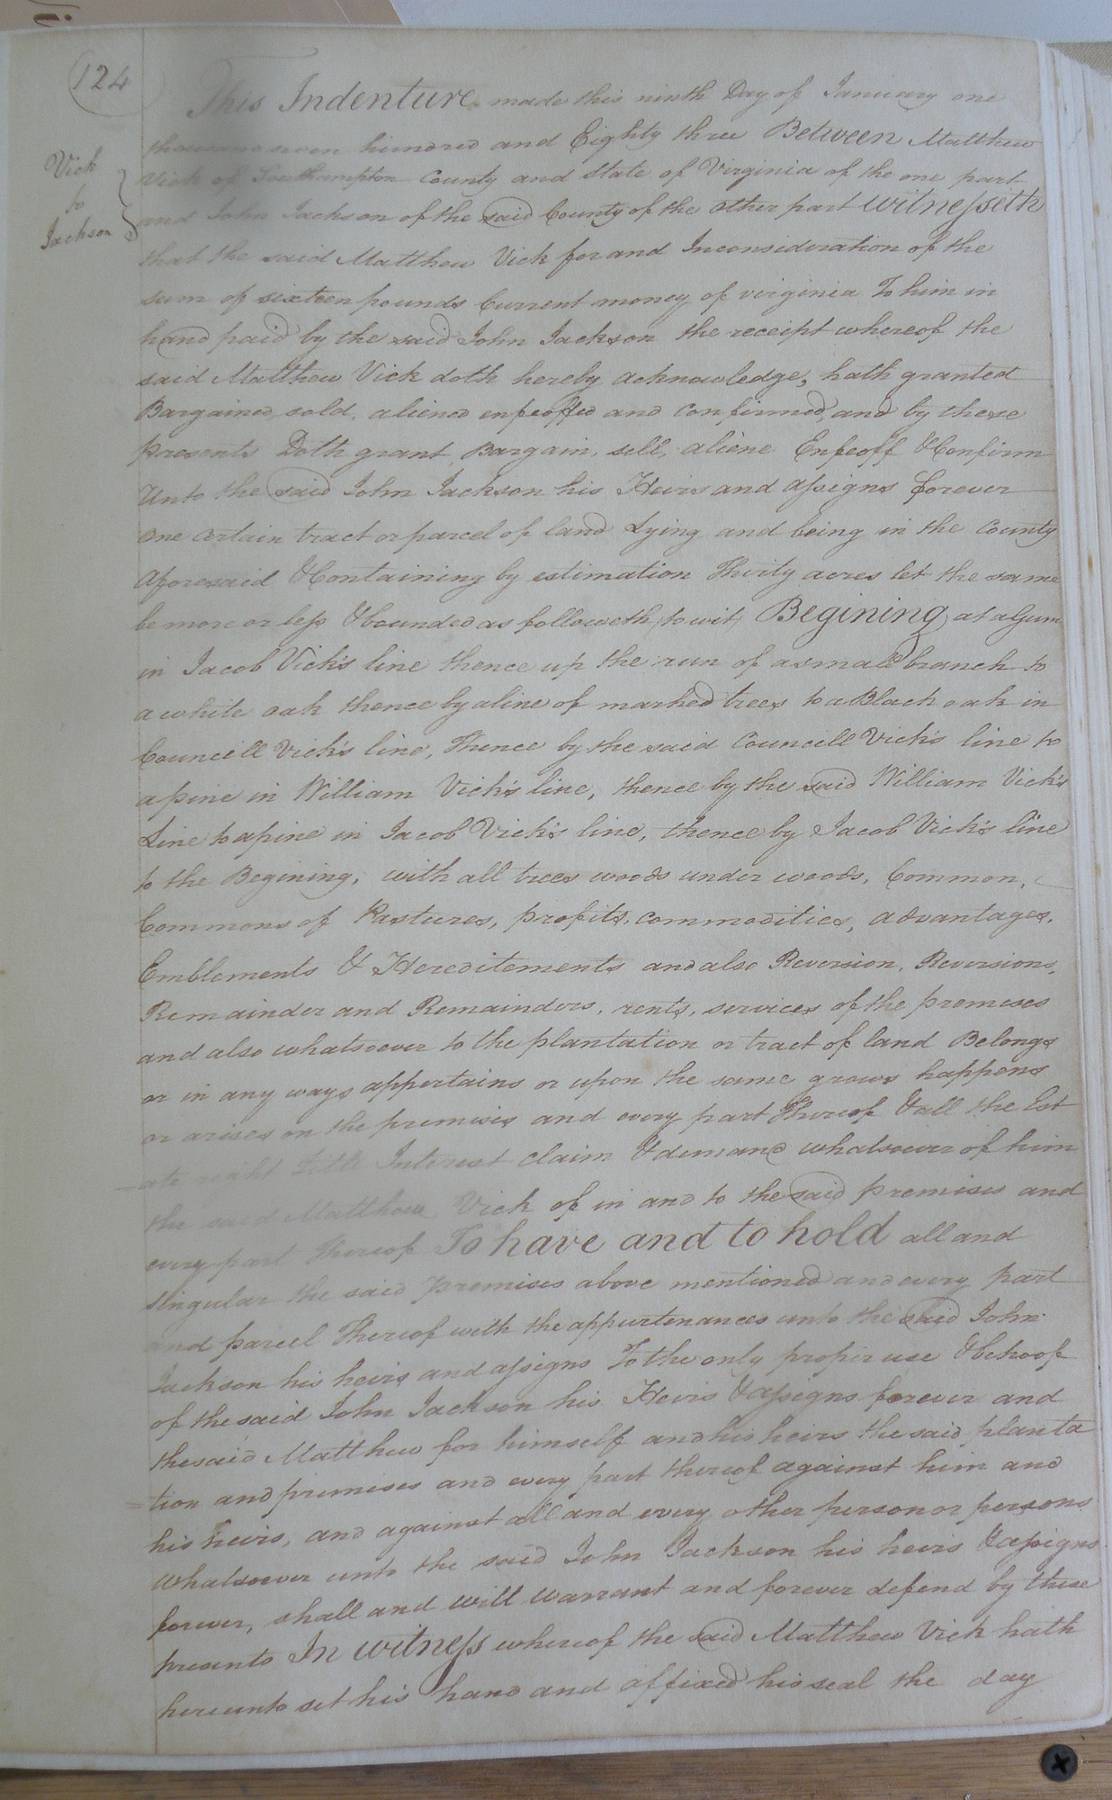 124
Vick
to
Jackson
This Indenture made this ninth Day of January one
thousand seven hundred and Eighty three Between Matthew
Vick of Southampton County and State of Virginia of the one part
and John Jackson of the said County of the other part Witnesseth
that the said Matthew Vick for and Inconsideration of the
sum of sixteen pounds Current money of virginia To him in
hand paid by the said John Jackson the receipt whereof the
said Matthew Vick doth hereby acknowledge, hath granted
Bargained sold, aliened enfeoffed and confirmed, and by these
presents Doth grant, Bargain, sell, aliene Enfeoff & Confirm
Unto the said John Jackson his Heirs and assigns forever
one certain tract or parcel of land Lying and being in the County
Aforesaid & Containing by estimation Thirty acres let the same
be more or less & bounded as followeth, to wit, Begining at a Gum
in Jacob Vick's line thence up the run of a small branch to
a white oak thence by a line of marked trees to a Black oak in
Councill Vick's line, Thence by the said Councill Vick's line to
a pine in William Vick's line, thence by the said William Vick's
Line to a pine in Jacob Vick's line, thence by Jacob Vick's line
to the Begining, with all trees woods under woods, Common,
Commons of Pastures, profits, commodities, advantages,
Emblements & Hereditements and also Reversion, Reversions,
Remainder and Remainders, rents, services of the premises
and also whatsoever to the plantation or tract of land Belongs
or in any ways appertains or upon the same grows happens
or arises on the premises and every part Thereof & all the Est
ate right title Interest claim & demand whatsoever of him
the said Matthew Vick of in and to the said premises and
every part Thereof To have and to hold all and
singular the said premises above mentioned and every part
and parcel Thereof with the appurtenances unto the said John
Jackson his heirs and assigns To the only proper use & behoof
of the said John Jackson his Heirs & assigns forever and
the said Matthew for himself and his heirs the said planta
tion and premises and every part thereof against him and
his heirs, and against all and every other person or persons
whatsoever unto the said John Jackson his heirs & assigns
forever, shall and will warrant and forever defend by these
presents In witness whereof the said Matthew Vick hath
hereunto set his hand and affixed his seal the day